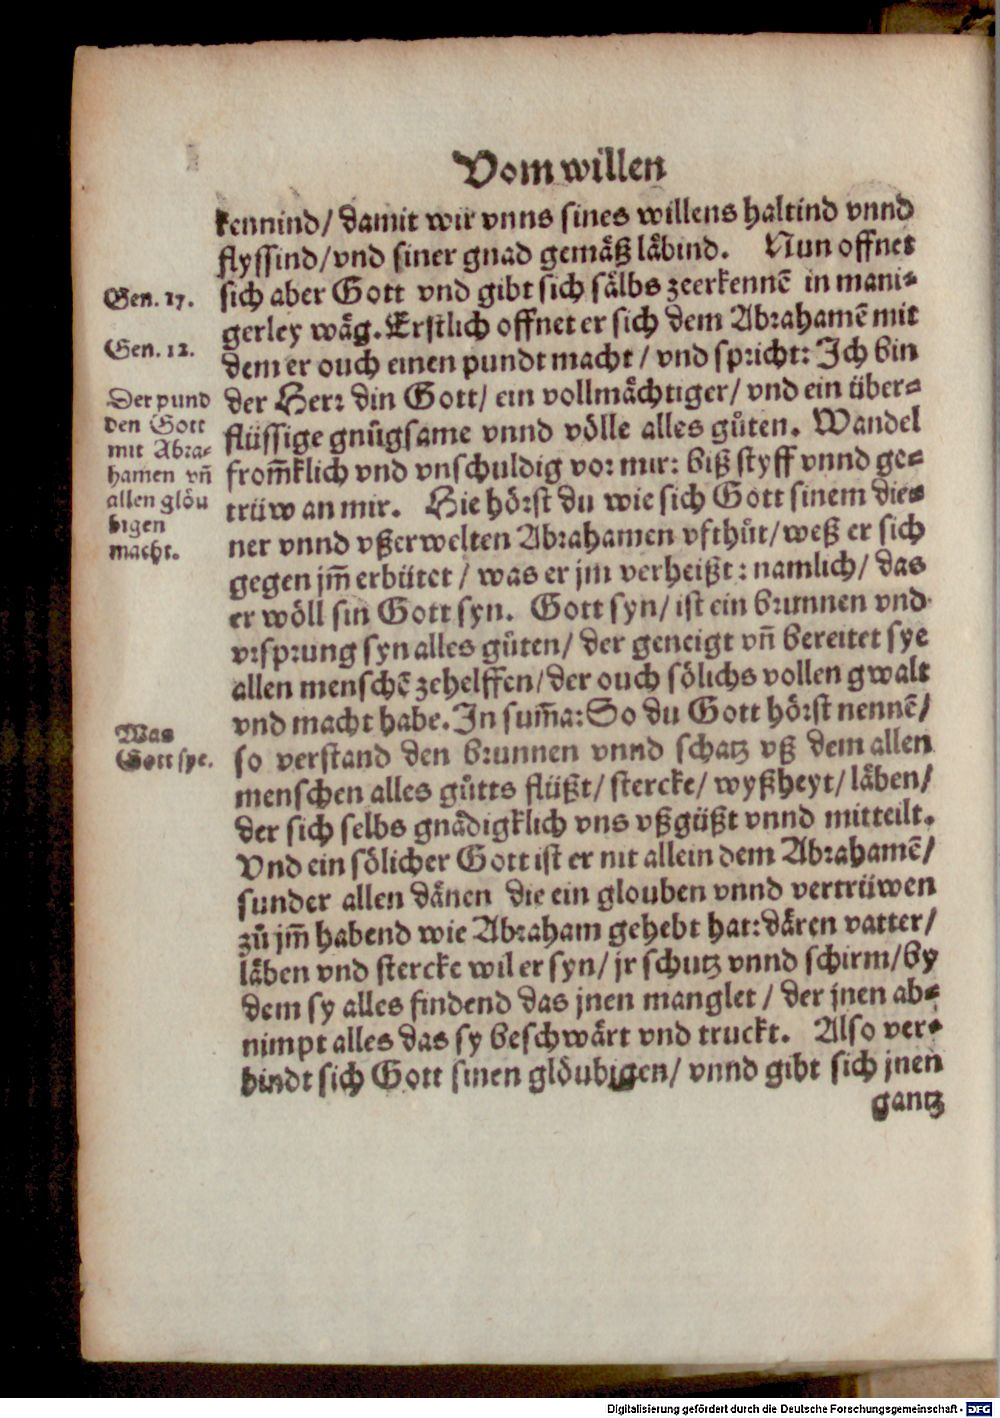 Vom willen
kennind/ damit wir vnns sines willens haltind vnnd
flyssind/ vnd siner gnad gemäß läbind. Nun offnet
sich aber Gott vnd gibt sich sälbs zeerkennē in mani-
gerley wäg. Erstlich offnet er sich dem Abrahamē mit
dem er ouch einen pundt macht / vnd spricht: Ich bin
der Herr din Gott/ ein vollmächtiger/ vnd ein über-
flüssige gnůgsame vnnd völle alles gůten. Wandel
from̄klich vnd vnschuldig vor mir: biß styff vnnd ge-
trüw an mir. Hie hörst du wie sich Gott sinem die-
ner vnnd vßerwelten Abrahamen vfthůt/ weß er sich
gegen jm̄ erbütet / was er jm verheißt: namlich/ das
er wöll sin Gott syn. Gott syn/ ist ein brunnen vnd
vrsprung syn alles gůten/ der geneigt vn̄ bereitet sye
allen menschē zehelffen/ der ouch sölichs vollen gwalt
vnd macht habe. In sum̄a: So du Gott hörst nennē/
so verstand den brunnen vnnd schatz vß dem allen
menschen alles gůtts flüßt/ stercke/ wyßheyt/ läben/
der sich selbs gnädigklich vns vßgüßt vnnd mitteilt.
Vnd ein sölicher Gott ist er nit allein dem Abrahamē/
sunder allen dänen die ein glouben vnnd vertrüwen
zů jm̄ habend wie Abraham gehebt hat: dären vatter/
läben vnd stercke wil er syn/ jr schutz vnnd schirm/ by
dem sy alles findend das jnen manglet / der jnen ab-
nimpt alles das sy beschwärt vnd truckt. Also ver-
bindt sich Gott sinen glöubigen/ vnnd gibt sich jnen
gantz
Gen. 17.
Gen. 12.
Der pund
den Gott
mit Abra-
hamen vn̄
allen glöu
bigen
macht.
Was
Gott sye.
Digitalisierung gefördert durch die Deutsche Forschungsgemeinschaft - DFG